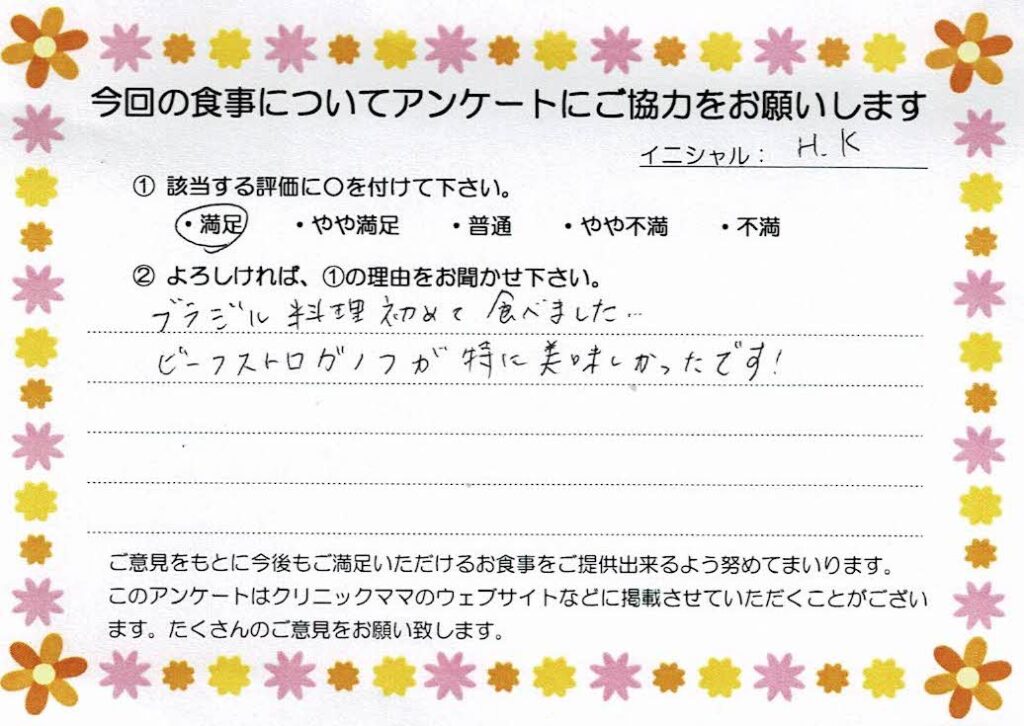 今回の食事についてアンケートにご協力をお願いします
イニシャル： H.K
① 該当する評価に〇を付けて下さい。
・満足 ・やや満足 ・普通 ・やや不満 ・不満
② よろしければ、①の理由をお聞かせ下さい。
ブラジル料理初めて食べました…
ビーフストロガノフが特に美味しかったです！
ご意見をもとに今後もご満足いただけるお食事をご提供出来るよう努めてまいります。
このアンケートはクリニックママのウェブサイトなどに掲載させていただくことがござい
ます。たくさんのご意見をお願い致します。